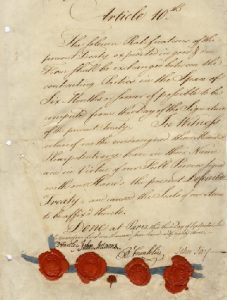 Article 10th
The solemn Ratifications of the
present Treaty expedited in good &
due Form shall be exchanged between the
contracting Parties in the Space of
Six Months or sooner if possible to be
computed from the Day of the Signature
of the present Treaty. In Witness
whereof we the undersigned their Ministers
Plenipotentiary have in their Name
and in Virtue of our Full Powers signed
with our Hands the present Definitive
Treaty, and caused the Seals of our Arms
to be affixed thereto.
Done at Paris, this third Day of September

D Hartley John Adams B Franklin John Jay